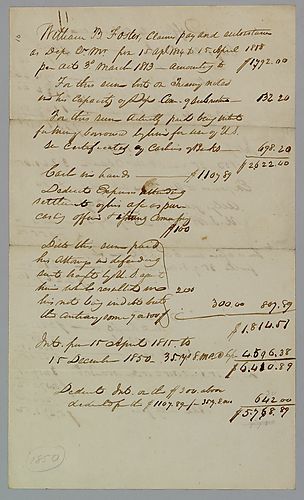 William B Foster, Claim pay and subsistence
as Dep. Qr Mr for 15 Apl 1814 to 15 April 1815
per Acts 3d March 1813 — Amounting to $1792.00
For this sum lost on Treasury notes
in his Capacity of Dep Com. of Subsistence 132.20
For this sum Actually paid by
for money borrowed by him for use of U.S.
See Certificate of Cashier of Bk 698.20
$2622.40
Cash in hands $1107.89
Deduct Expenses attending
settlement of his a/c as per
$100
Ditto this sum paid
his Attorneys in defending
suit brought by U.S. against
him which resulted in
his not being indebted but
the contrary 200
300.00 807.89
$1,814.51
Int. for 15 April 1815 to
15 December 1850. 35 yrs 8 mos 4,596.38
$6,410.89
Deduct Int. on the $300 above
deducted from the $1107.89 642.00
$5,768.89
(1850)